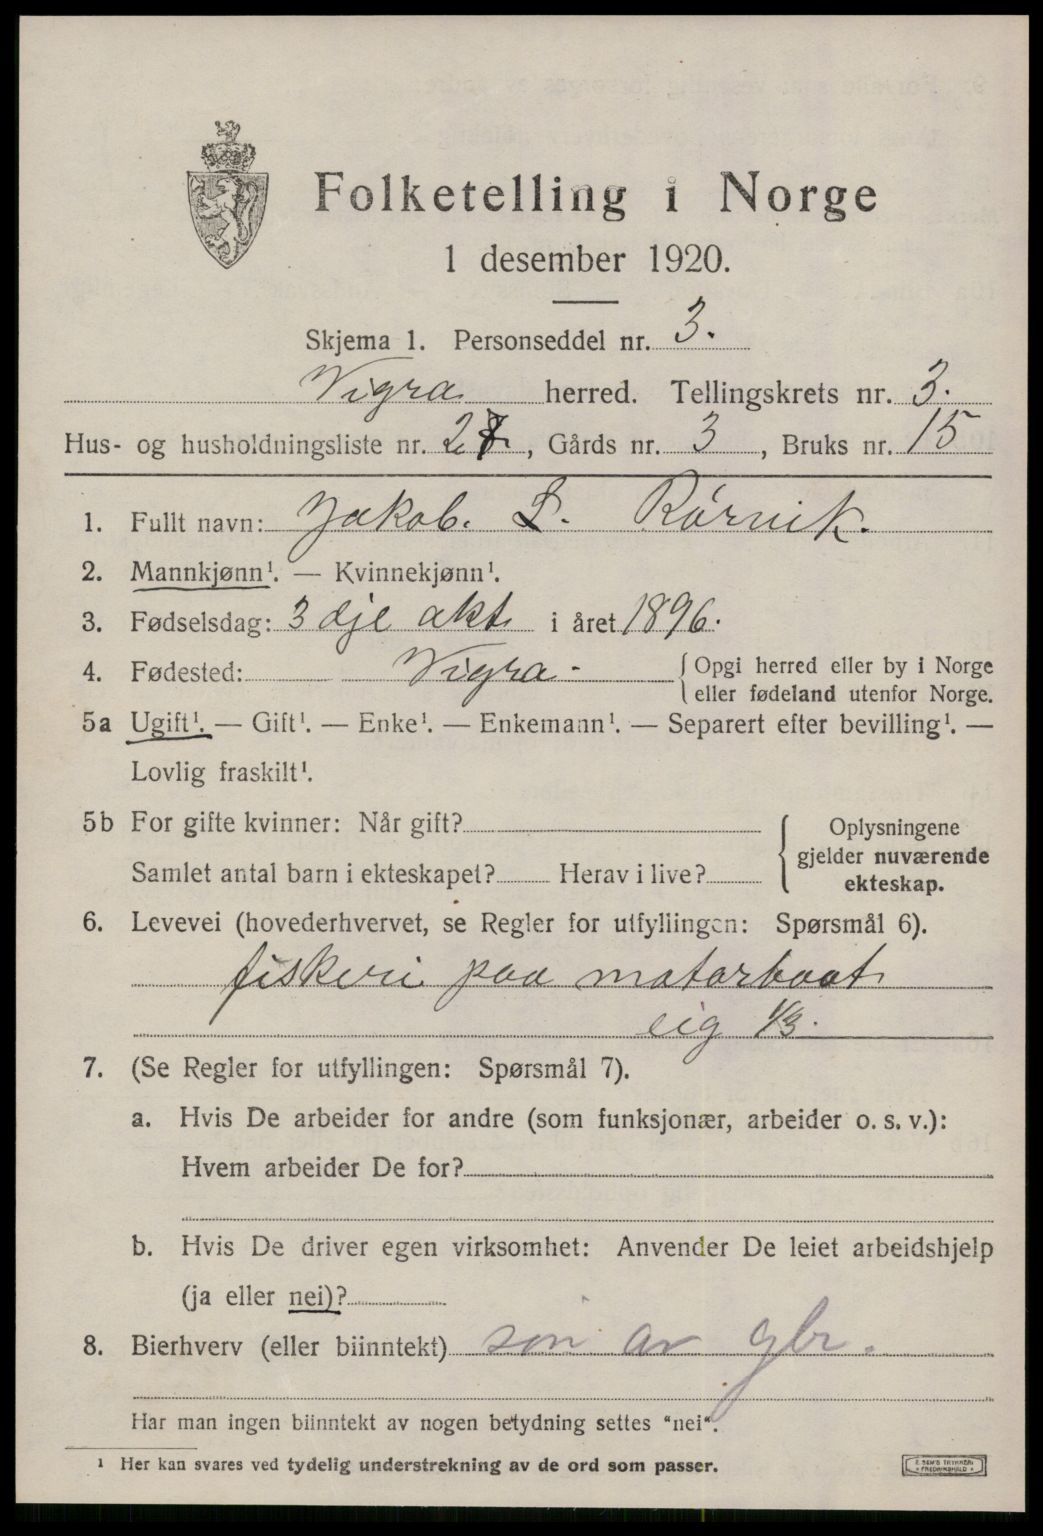 Folketelling i Norge
1 desember 1920.
Skjema 1. Personseddel nr. 3.
Vigra herred. Tellingskrets nr. 3.
Hus- og husholdningsliste nr. 27, Gårds nr. 3, Bruks nr. 15
1. Fullt navn: Jakob. L. Rørvik.
2. Mannkjønn¹. — Kvinnekjønn¹.
3. Fødselsdag: 3 dje okt. i året 1896.
4. Fødested: Vigra. { Opgi herred eller by i Norge
eller fødeland utenfor Norge.
5a Ugift¹. — Gift¹. — Enke¹. — Enkemann¹. — Separert efter bevilling¹. —
Lovlig fraskilt¹.
5b For gifte kvinner: Når gift?
Samlet antal barn i ekteskapet? Herav i live?
{ Oplysningene
gjelder nuværende
ekteskap.
6. Levevei (hovederhvervet, se Regler for utfyllingen: Spørsmål 6).
fiskeri paa motorbaat
eig 1/3.
7. (Se Regler for utfyllingen: Spørsmål 7).
a. Hvis De arbeider for andre (som funksjonær, arbeider o. s. v.):
Hvem arbeider De for?
b. Hvis De driver egen virksomhet: Anvender De leiet arbeidshjelp
(ja eller nei)?
8. Bierhverv (eller biinntekt) søn av gbr.
Har man ingen biinntekt av nogen betydning settes “nei“.
¹ Her kan svares ved tydelig understrekning av de ord som passer.